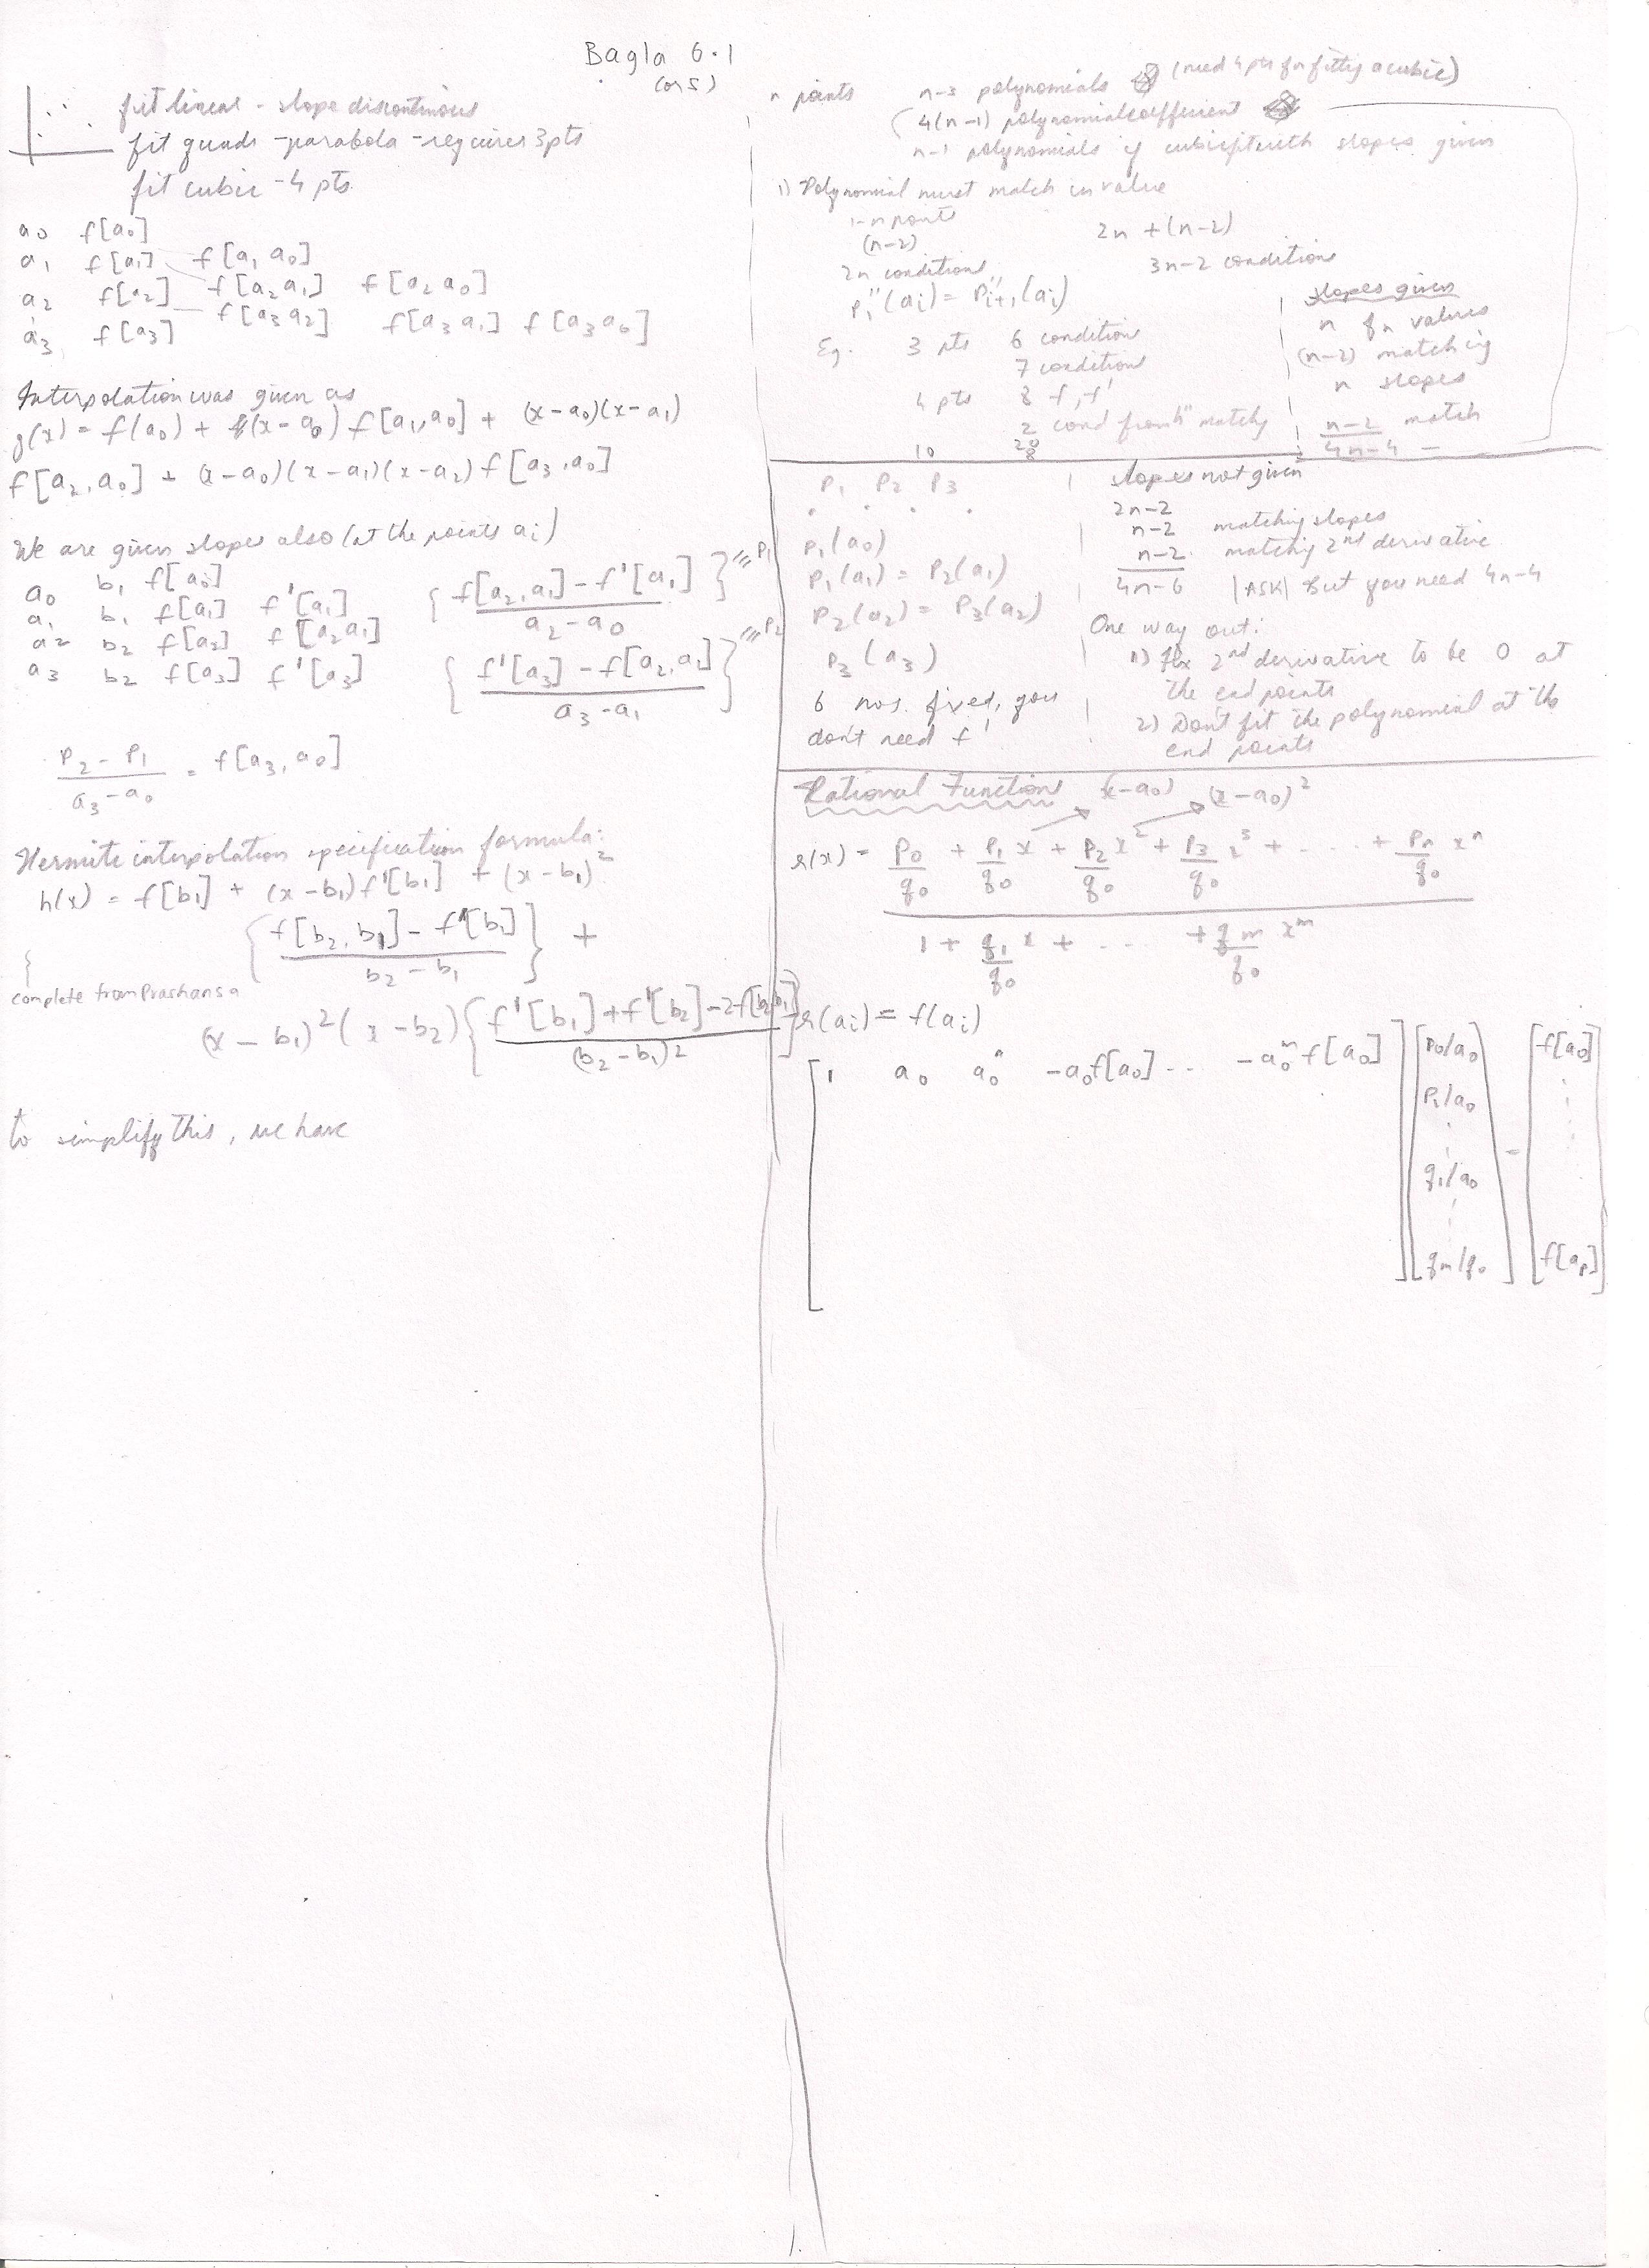 Bagla 6.1
(or 5)
fit linear - slope discontinous
fit quads - parabola - requires 3pts
fit cubic - 4 pts
a0 f[a0]
a1 f[a1] f[a1 a0]
a2 f[a2] f[a2 a1] f[a2 a0]
a3 f[a3] f[a3 a2] f[a3 a1] f[a3 a0]
Interpolation was given as
g(x) = f(a0) + (x-a0) f[a1,a0] + (x-a0)(x-a1)
f[a2,a0] + (x-a0)(x-a1)(x-a2) f[a3,a0]
We are given slopes also (at the points ai)
a0 b1 f[a0]
a1 b1 f[a1] f'[a1] { f[a2,a1] - f'[a1] / a2-a0 } ≡ P1
a2 b2 f[a2] f[a2a1]
a3 b2 f[a3] f'[a3] { f'[a3] - f[a2,a1] / a3-a1 } ≡ P2
P2 - P1 / a3-a0 = f[a3,a0]
Hermite interpolation specification formula:
h(x) = f[b1] + (x-b1)f'[b1] + (x-b1)²
{ f[b2,b1] - f'[b1] / b2-b1 } +
{ complete from Prashansa
(x-b1)²(x-b2) { f'[b1]+f'[b2]-2f[b2b1] / (b2-b1)² }
to simplify this, we have
n points n-3 polynomials (need 4 pts for fitting a cubic)
( 4(n-1) polynomial coefficient
n-1 polynomials if cubic fit with slopes given
1) Polynomial must match in value
1-n points
(n-2) 2n + (n-2)
2n conditions 3n-2 conditions
Pi''(ai) = P''i+1(ai)
Eg. 3 pts 6 condition
7 conditions
4 pts 8 f, f'
2 cond from '' matching
10
slopes given
n fn values
(n-2) matching
n slopes
n-2 match
4n-4 -
P1 P2 P3
P1(a0)
P1(a1) = P2(a1)
P2(a2) = P3(a2)
P3(a3)
6 nos. fixed, you
don't need f'
slopes not given
2n-2
n-2 matching slopes
n-2 matching 2nd derivative
4n-6 |ASK| But you need 4n-4
One way out:
1) Fix 2nd derivative to be 0 at
the end points
2) Don't fit the polynomial at the
end points
Rational Function (x-a0) (x-a0)²
r(x) = p0/q0 + p1/q0 x + p2/q0 x² + p3/q0 x³ + .... + pn/q0 xⁿ
1 + q1/q0 x + .... + qm/q0 xᵐ
r(ai) = f(ai)
[ 1 a0 a0ⁿ -a0f[a0] .. -a0ᵐf[a0] ] [ p0/a0 p1/a0 : q1/a0 : qm/q0 ] = [ f[a0] : : f[ap] ]